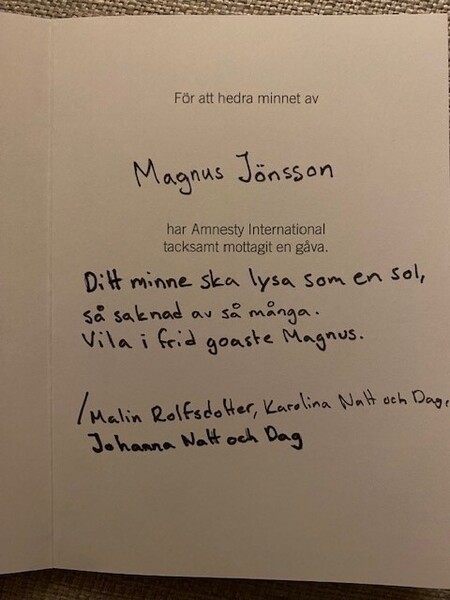 För att hedra minnet av
Magnus Jönsson
har Amnesty International
tacksamt mottagit en gåva.
Ditt minne ska lysa som en sol,
så saknad av så många.
Vila i frid goaste Magnus.
/Malin Rolfsdotter, Karolina Natt och Dag,
Johanna Natt och Dag